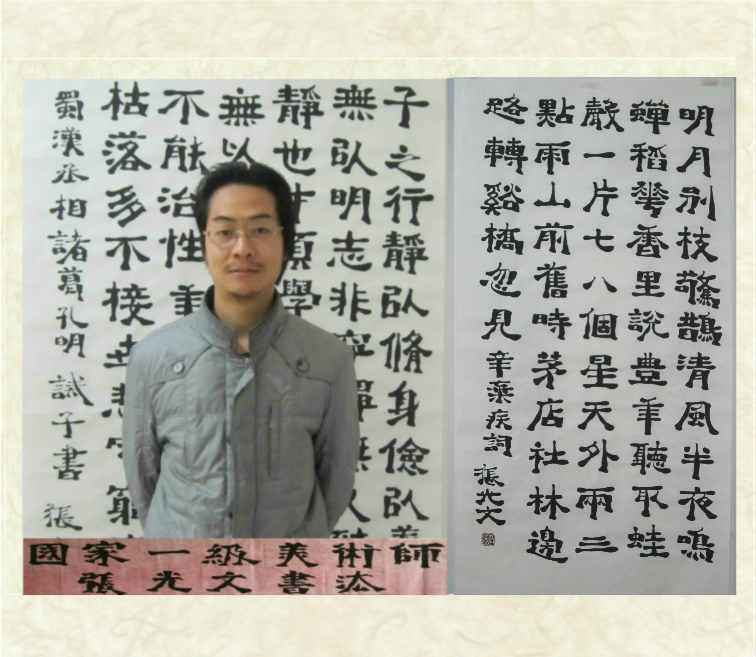 子之行靜以脩身儉以養
無以明志非寧靜無以致
靜也才須學
無以
不能治性年
枯落多不接世悲守窮
蜀漢丞相諸葛孔明誡子書 張
國家一級美術師
張光文書法
明月别枝驚鵲清風半夜鳴
蟬稻華香里説豊年聽取蛙
聲一片七八個星天外兩三
點雨山前舊時茅店社林邊
路轉谿橋忽見 辛棄疾詞 張光文